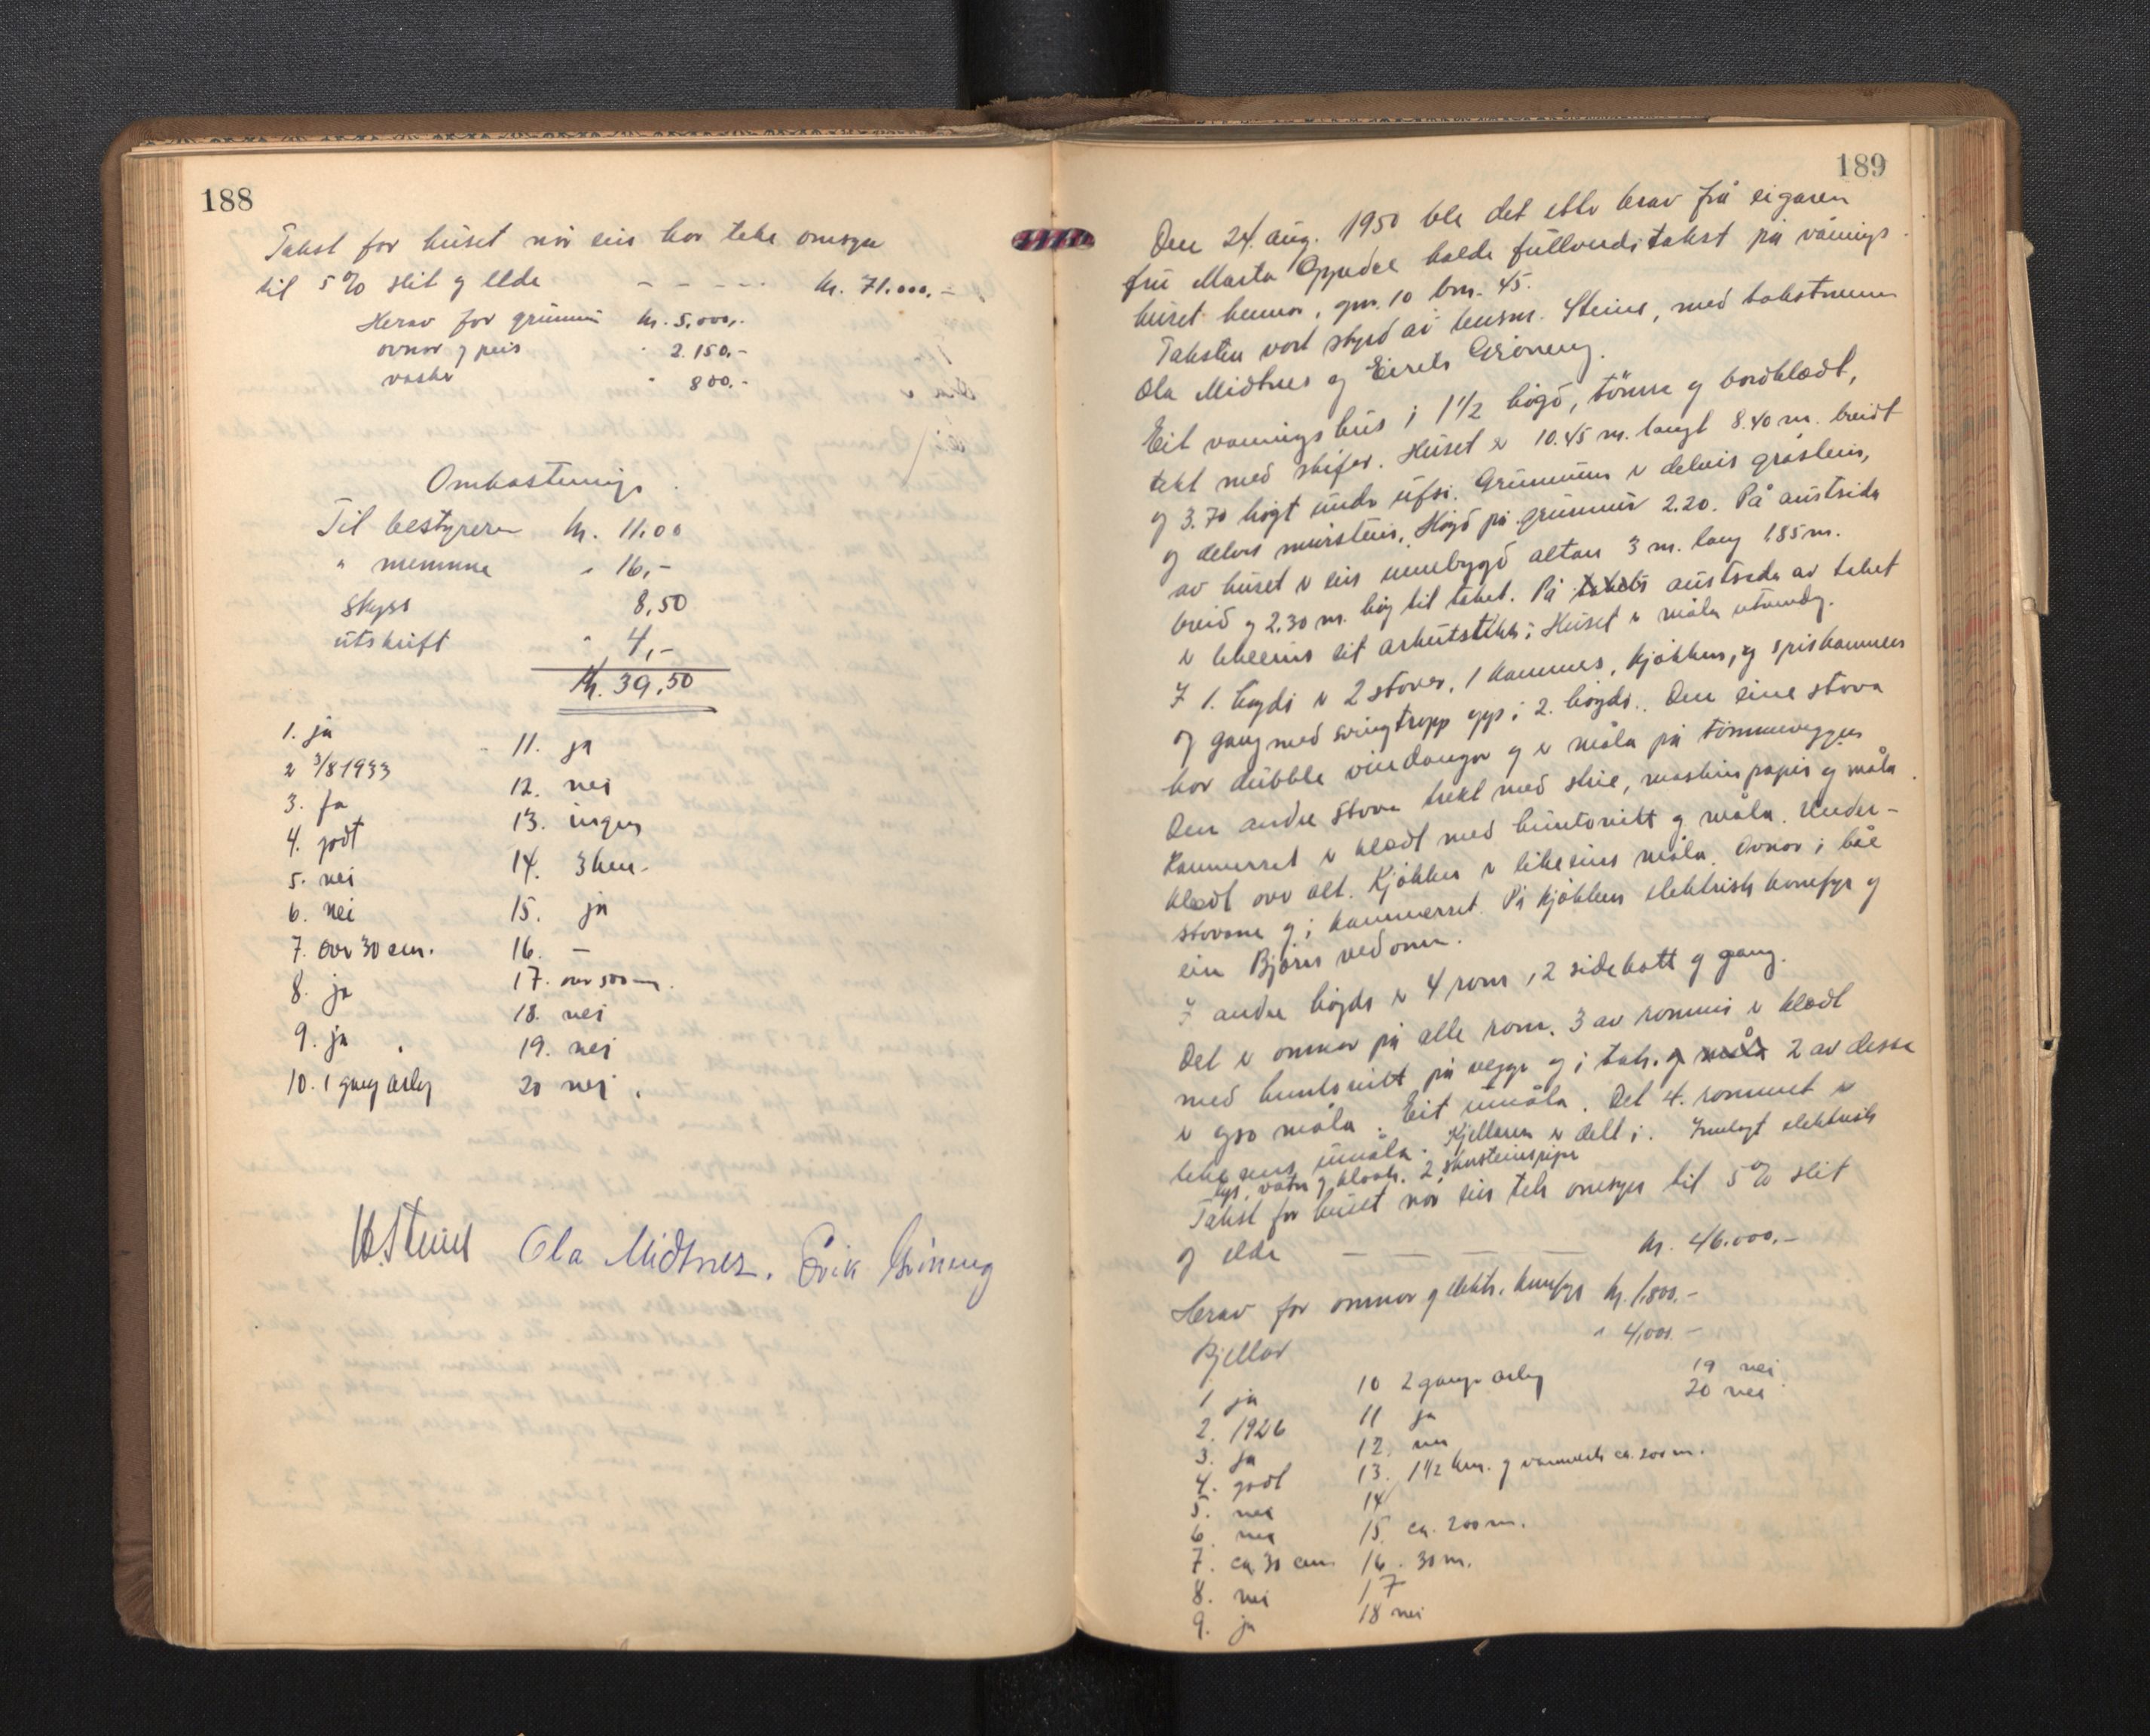 188
Takst for huset når ein har teke omsyn
til 5% slit og elde - - - - - kr. 71.000,-
Herav for grunnmur kr. 5.000,-
ovnar og peis " 2.150,-
vasker " 800,-
Omkostninga.
Til bestyreren kr. 11.00
" mennene " 16,-
Skyss 8,50
utskrift " 4,-
Kr. 39,50
1. ja
2 3/8 1933
3. ja
4. godt
5. nei
6. nei
7. over 30 cm.
8. ja
9. ja
10. 1 gang årleg
11. ja
12. nei
13. ingen
14. 3 km.
15. ja
16. –
17. over 500 m.
18. nei
19. nei
20 nei.
H. Steine Ola Midtnes. Eirik Grøneng
189
Den 24. aug. 1950 ble det etter krav frå eigaren
fru Marta halde fullverdi takst på vånings
huset hennar, gnr. 10 bnr. 45.
Taksten vart styrd av lensm. Steine, med takstmenn
Ola Midtnes og Eirik Grøneng.
Eit vaaningshus i 1 1/2 høgd, tømra og bordklædt,
tekt med skifer. Huset er 10.45 m. langt 8.40 m. breidt
og 3.70 høgt under ufsi. Grunnmuren er delvis gråstein,
og delvis murstein. Høgd på grunnmur 2.20. På austsida
av huset er ein innebygd altan 3 m. lang 1.85 m.
breid og 2.30 m. høg til taket. På austsida av taket
er likeeins eit arkutstikk; Huset er måla utvendig.
I 1. høgdi er 2 stover, 1 kammer, kjøkken, og spiskammers
og gang med svingtropp opp i 2. høgdi. Den eine stova
har dubble vindaugor og er måla på tømmerveggen
Den andre stova trekt med strie, maskinpapir og måla.
Kammerset er klædt med huntonitt og måla. Under-
klædt over alt. Kjøkken er likeeins måla. Ovnar i båe
stovene og i kammerset. På kjøkken elektrisk komfyr og
ein Bjørn vedomn.
I andre høgda er 4 rom, 2 sidekott og gang.
Det er omnar på alle rom. 3 av romma er klædt
med huntonitt på vegger og i tak. og måla 2 av desse
er også måla. Eit umåla. Det 4. rommet er
likeeins umåla. Kjellaren er delt i. Innlagt elektrisk
lys, vatn og kloakk. 2 skorsteinspiper
Takst for huset når ein tek omsyn til 5% slit
og elde — — — — kr. 46.000,-
Herav for omnar og elektr. komfyr kr. 1.800,-
Kjellar " 4.000,-
1 ja
2. 1926
3. ja
4. godt
5. nei
6. nei
7. ca. 30 cm
8. nei
9. ja
10 2 gange årleg
11 ja
12. nei
13. 1 1/2 km. og ca. 200 m.
14
15. ca. 200 m.
16. 30 m.
17
18 nei
19 nei
20 nei